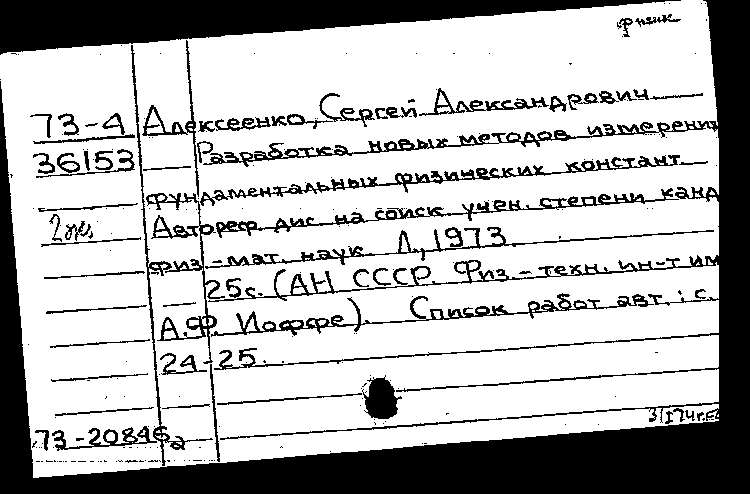 физик
73-4 Алексеенко, Сергей Александрович.
36153 Разработка новых методов измерени
фундаментальных физических констант
2 экз Автореф. дис. на соиск. учен. степени канд
физ-мат. наук. Л., 1973.
25с. (АН СССР. Физ.-техн. ин-т им
А.Ф. Иоффе). Список работ авт.: с.
24-25.
73-20846а